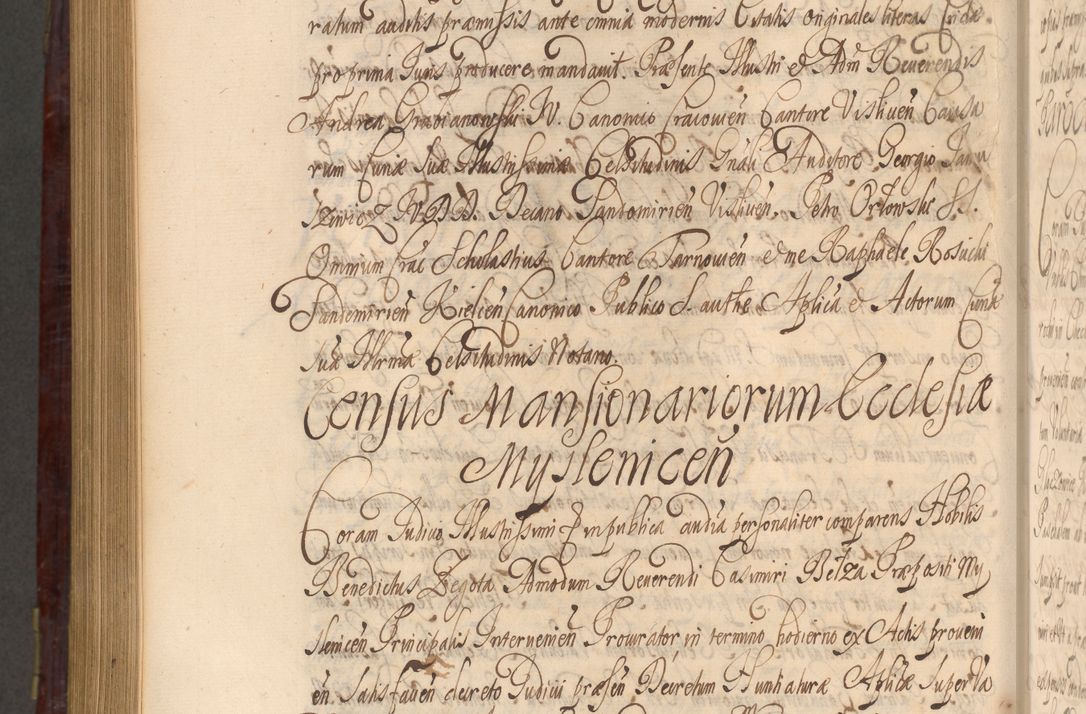 ratum auditis præmissis ante omnia modernis Citatis originales literas Indæ
pro prima Juris producere mandavit. Præsente Illustri et Adm Reverendis
Andrea Grabianowski IV. Canonico Cracovien Cantore Visliven Causa
rum Curiæ Suæ Illustrissimæ Celsitudinis Gnali Auditore Georgio Janu
szewicz IVDD. Decano Sandomirien Visliven. Petro Orłowski S.S.
Omnium Crac Scholastico Cantore Tarnovien et me Raphaele Rosicki
Sandomirien Kielcien Canonico Publico S. autthe Aplica et Actorum Curiæ
suæ Illrmæ Celsitudinis Notario.
Census Mansionariorum Ecclesiæ
Myslenicen
Coram Judicio Illustrissimi in publica audia personaliter comparens Nobilis
Benedictus Zegota Admodum Reverendi Casimiri Bełza Præpositi My
slenicen Principalis Intervenien Procurator, in termino hodierno ex Actis proveni
en satisfacien decreto Judicii præsen Decretum Nuntiaturæ Aplicæ super Va